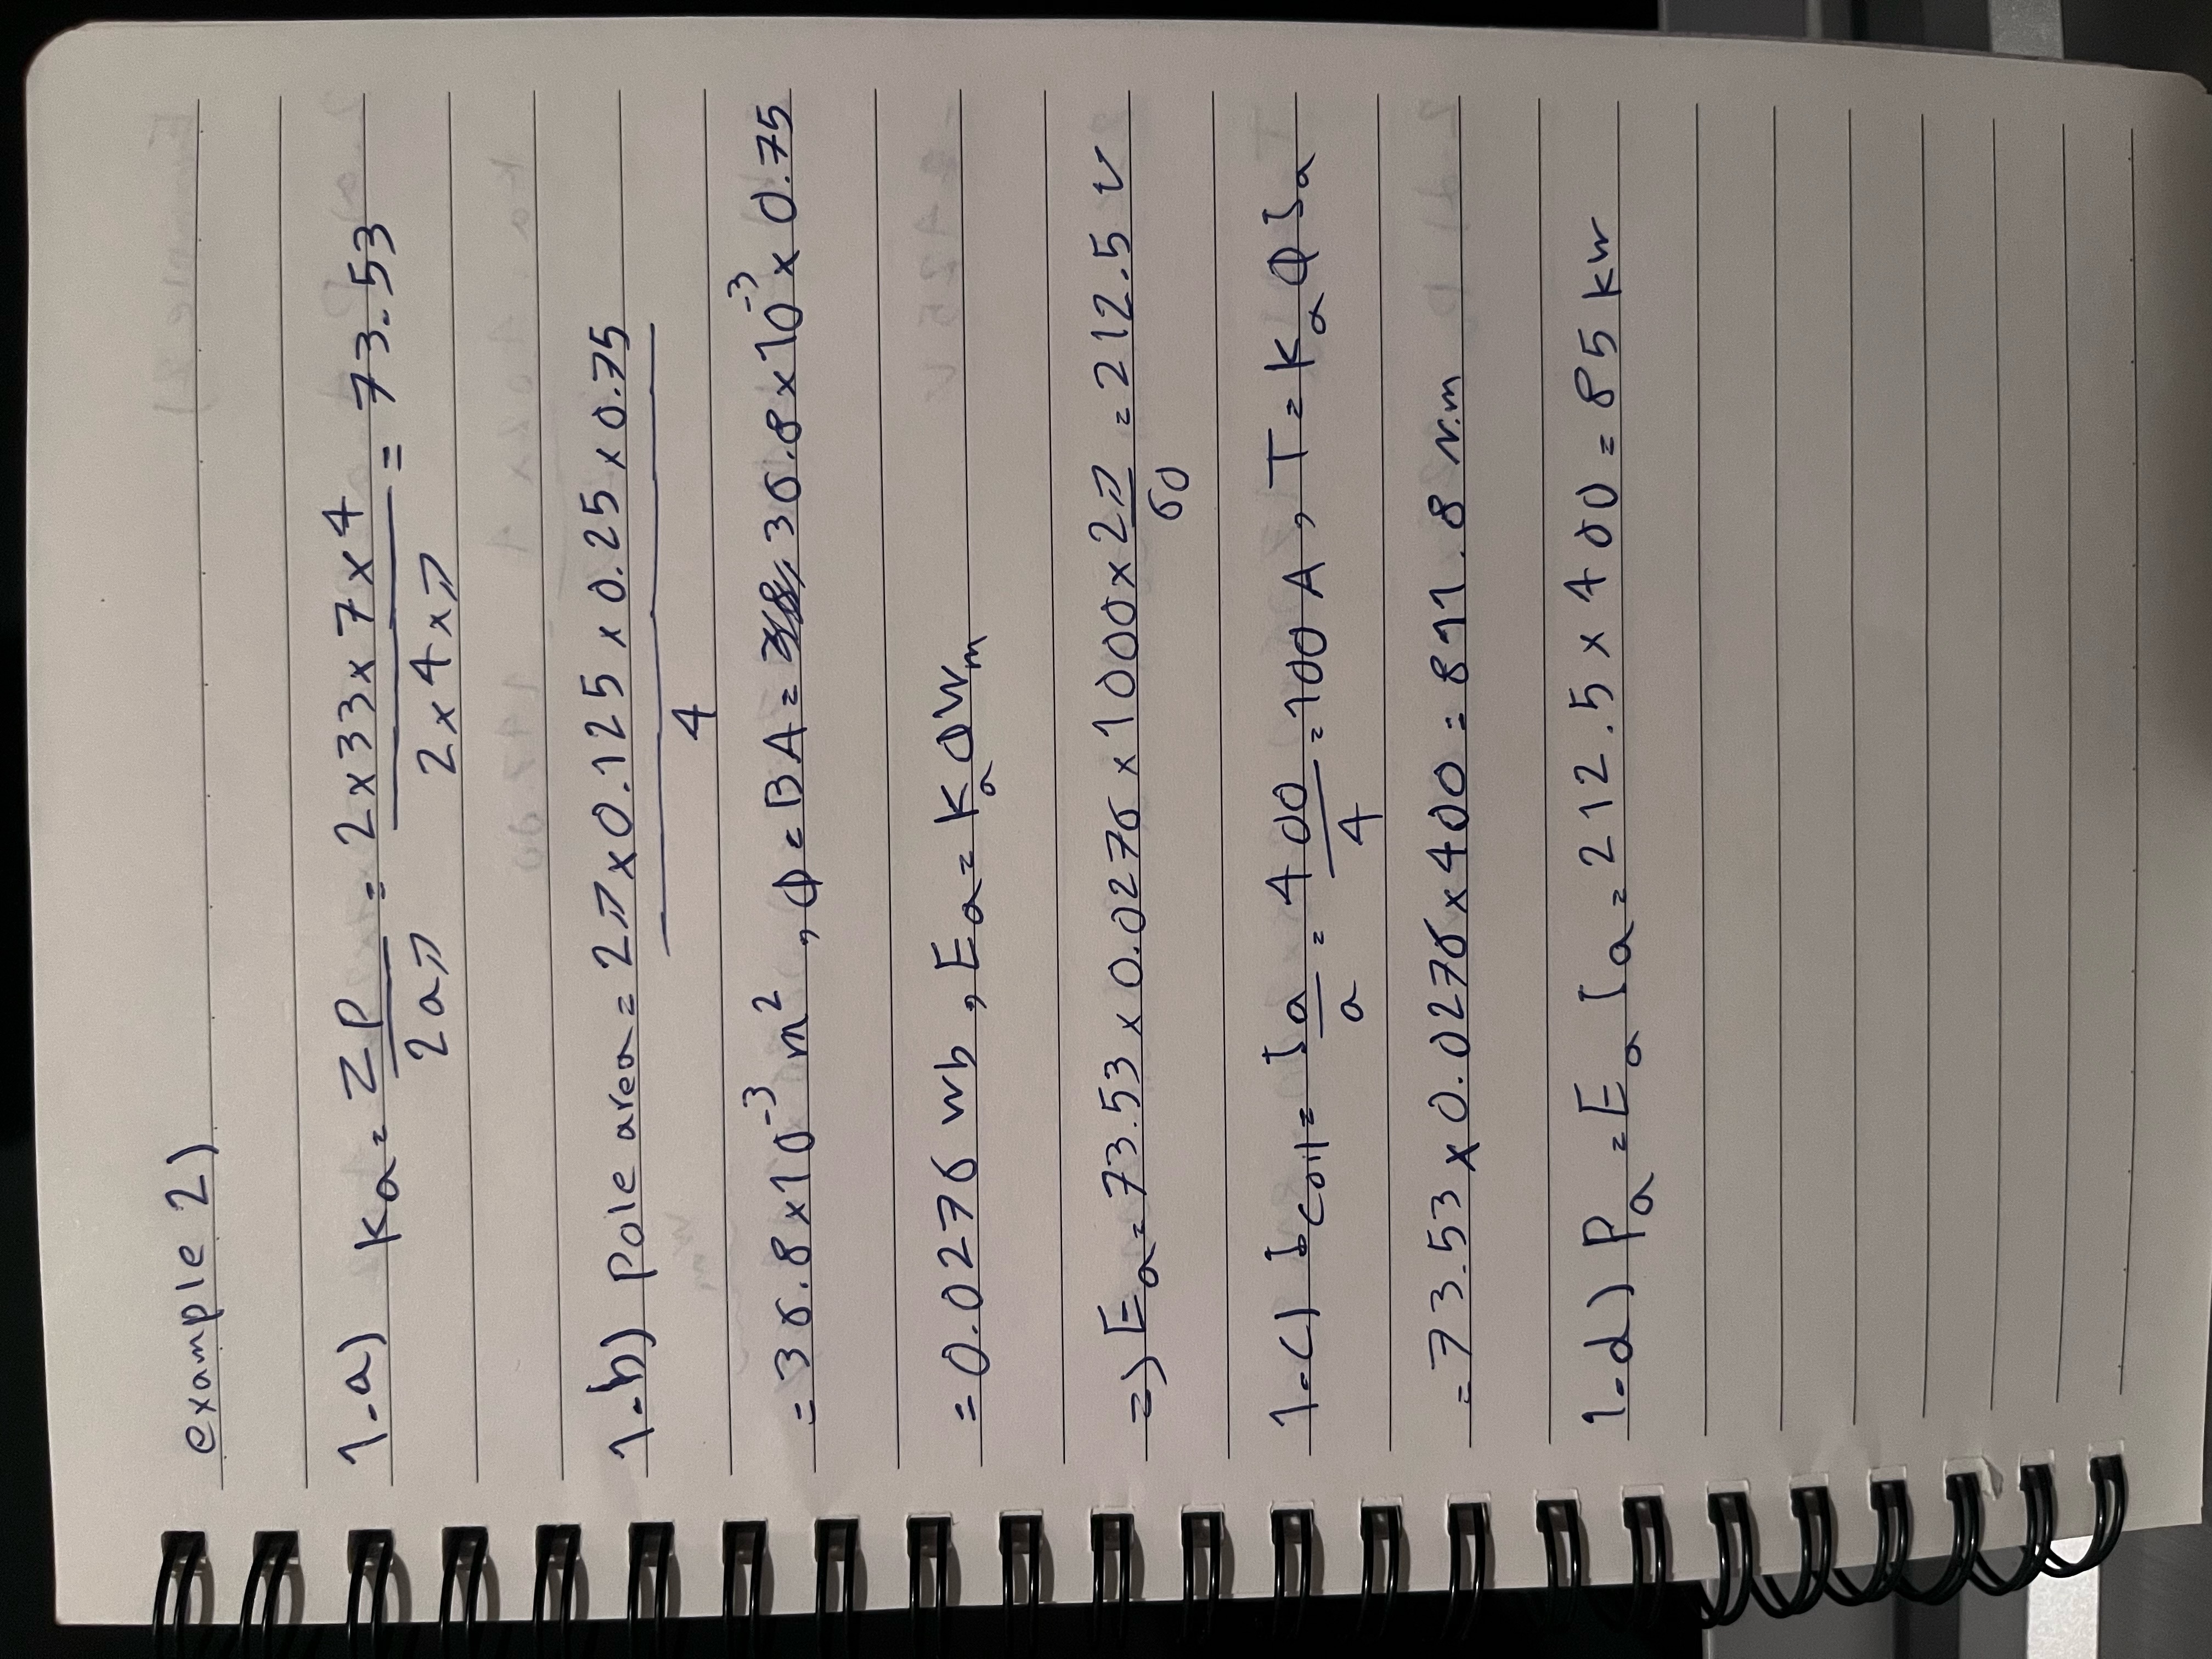 example 2)
1-a) Ka = ZP / 2aπ = 2x33x7x4 / 2x4xπ = 73.53
1-b) pole area = 2π x 0.125 x 0.25 x 0.75 / 4
= 36.8x10⁻³ m² , Φ = BA = 36.8x10⁻³ x 0.75
= 0.0276 wb , Ea = KaΦWm
=> Ea = 73.53 x 0.0276 x 1000 x 2π / 60 = 212.5 V
1-c) Icoil = Ia / a = 400 / 4 = 100 A , T = KaΦIa
= 73.53 x 0.0276 x 400 = 811.8 N.m
1-d) Pa = Ea Ia = 212.5 x 400 = 85 kw